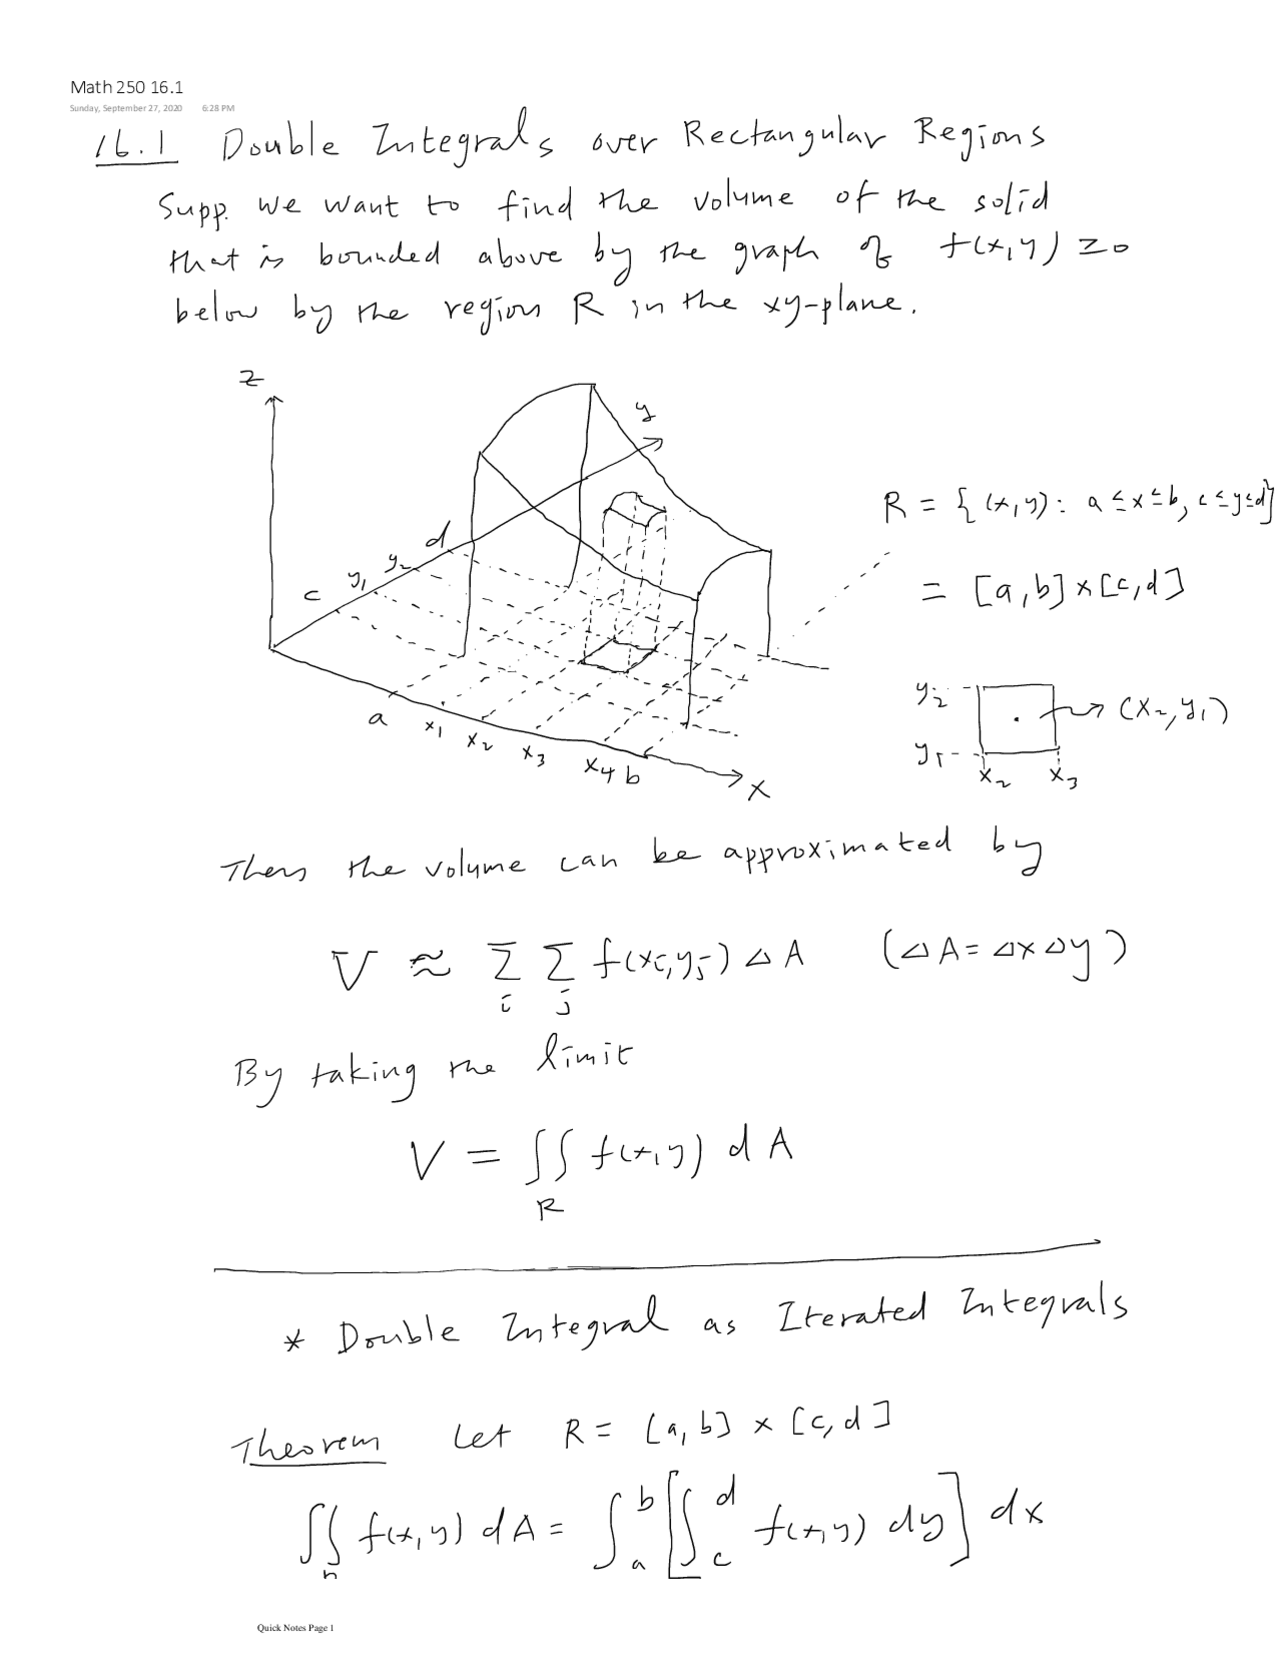 Math 250 16.1
Sunday, September 27, 2020 6:28 PM
16.1 Double Integrals over Rectangular Regions
Supp. we want to find the volume of the solid
that is bounded above by the graph of f(x,y) ≥ 0
below by the region R in the xy-plane.
z
y
d
y₂
y₁
c
a
x₁
x₂
x₃
x₄
b
x
R = {(x,y): a ≤ x ≤ b, c ≤ y ≤ d}
= [a,b] × [c,d]
y₂
(x₂, y₁)
y₁
x₂ x₃
Then the volume can be approximated by
V ≈ Σ Σ f(xᵢ,yⱼ) Δ A (Δ A = Δx Δy)
i j
By taking the limit
V = ∬ f(x,y) d A
R
* Double Integral as Iterated Integrals
Theorem Let R = [a,b] × [c,d]
∬_R f(x,y) dA = ∫_a^b [∫_c^d f(x,y) dy] dx
Quick Notes Page 1